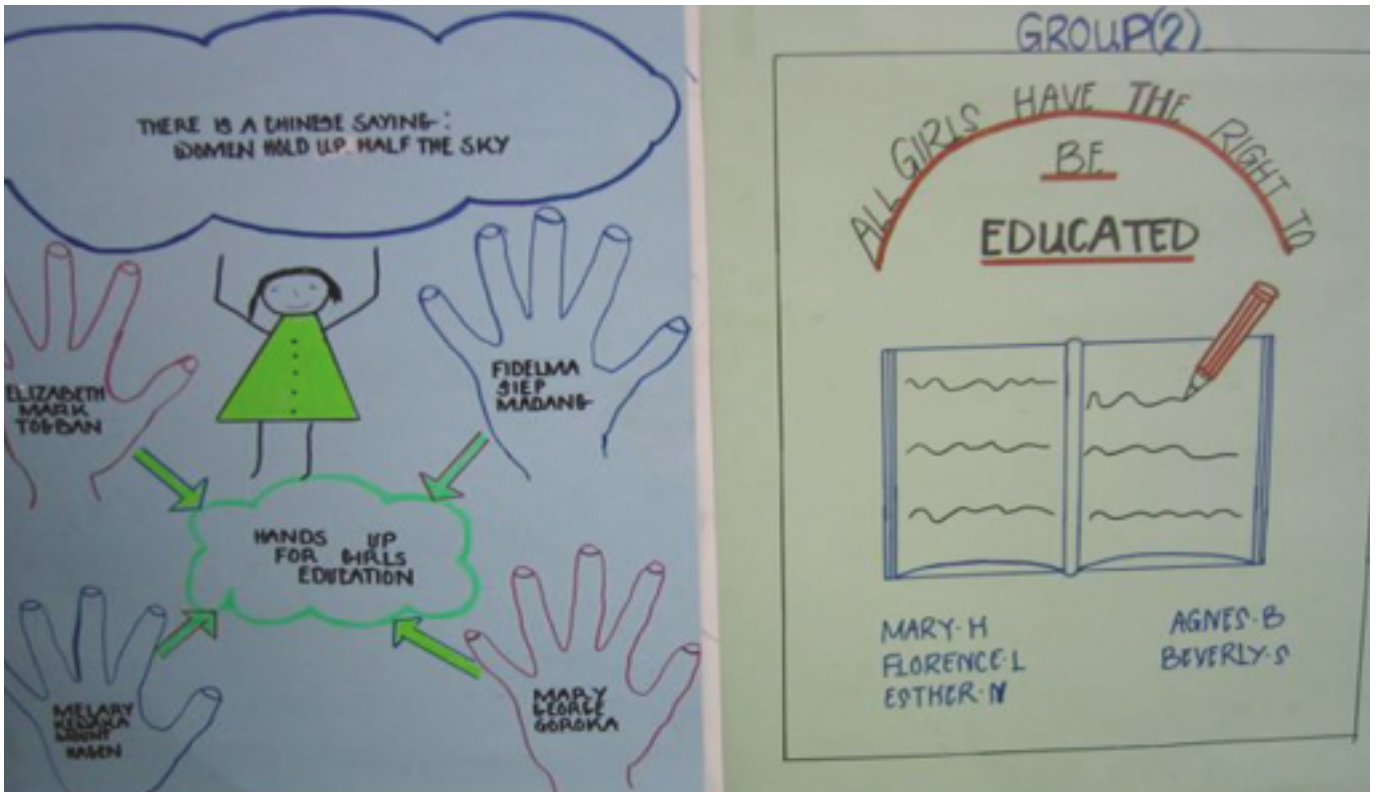 THERE IS A CHINESE SAYING:
WOMEN HOLD UP HALF THE SKY
ELIZABETH
MARK
TOGBAN
FIDELMA
SIEP
MADANG
HANDS UP
FOR GIRLS
EDUCATION
MELARY
MOUNT
HAGEN
MARY
GEORGE
GOROKA
GROUP(2)
ALL GIRLS HAVE THE RIGHT TO
BE
EDUCATED
MARY·H
FLORENCE·L
ESTHER·N
AGNES·B
BEVERLY·S